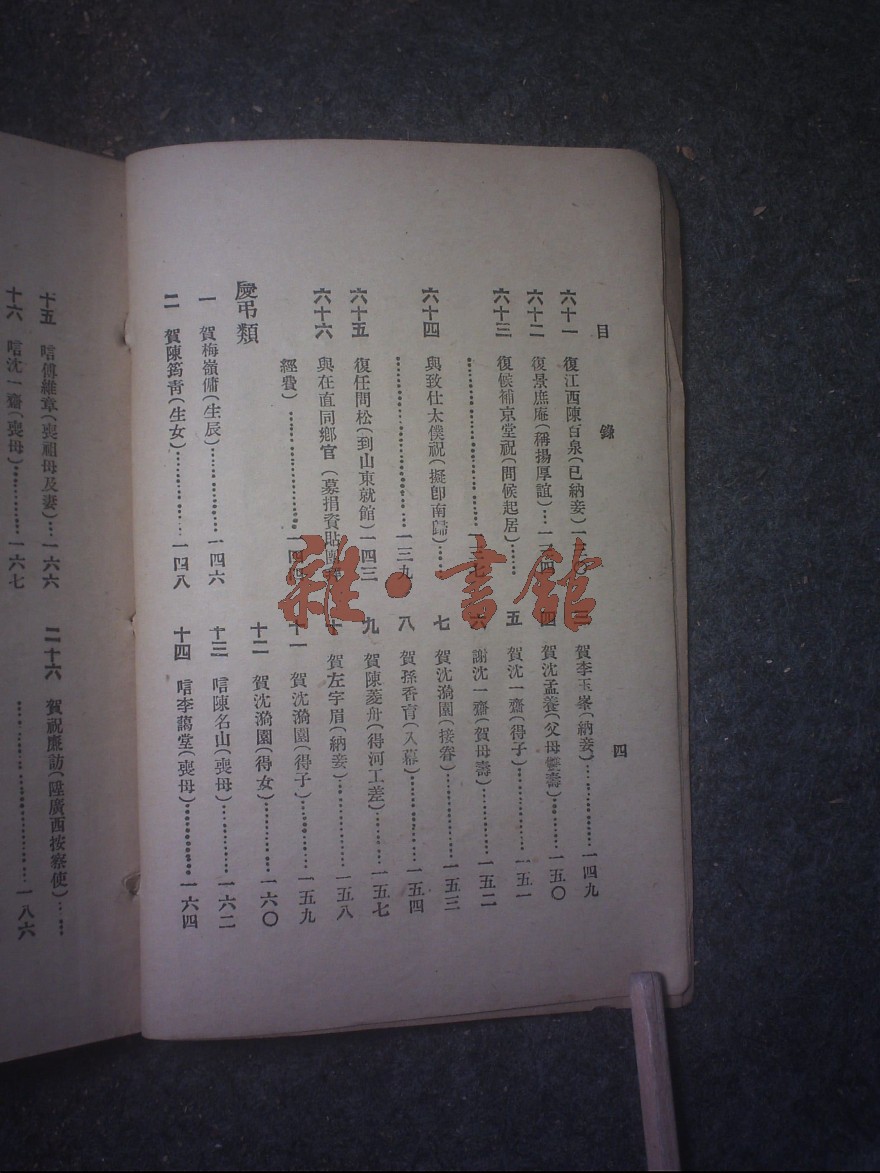 目 錄 四
六十一 復江西陳百泉(已納妾)
六十二 復景庶庵(稱揚厚誼)…
六十三 復候補京堂祝(問候起居)…
六十四 與致仕太僕祝(擬卽南歸)……
……一三九
六十五 復任問松(到山東就館)一四三
六十六 與在直同鄉官(募捐資貼
經費)……
慶弔類
一 賀梅嶺傭(生辰)……一四六
二 賀陳筠靑(生女)……一四八
三 賀李玉峯(納妾)……一四九
四 賀沈孟養(父母雙壽)…一五〇
五 賀沈一齋(得子)……一五一
六 謝沈一齋(賀母壽)……一五二
七 賀沈漪園(接眷)……一五三
八 賀孫香育(入幕)……一五四
九 賀陳菱舟(得河工差)……一五七
十 賀左字眉(納妾)……一五八
十一 賀沈漪園(得子)……一五九
十二 賀沈漪園(得女)……一六〇
十三 唁陳名山(喪母)……一六二
十四 唁李藹堂(喪母)……一六四
十五 唁傅維章(喪祖母及妻)…一六六
十六 唁沈一齋(喪母)……一六七
二十六 賀祝廉訪(陞廣西按察使)……
……一八六
雜·書館